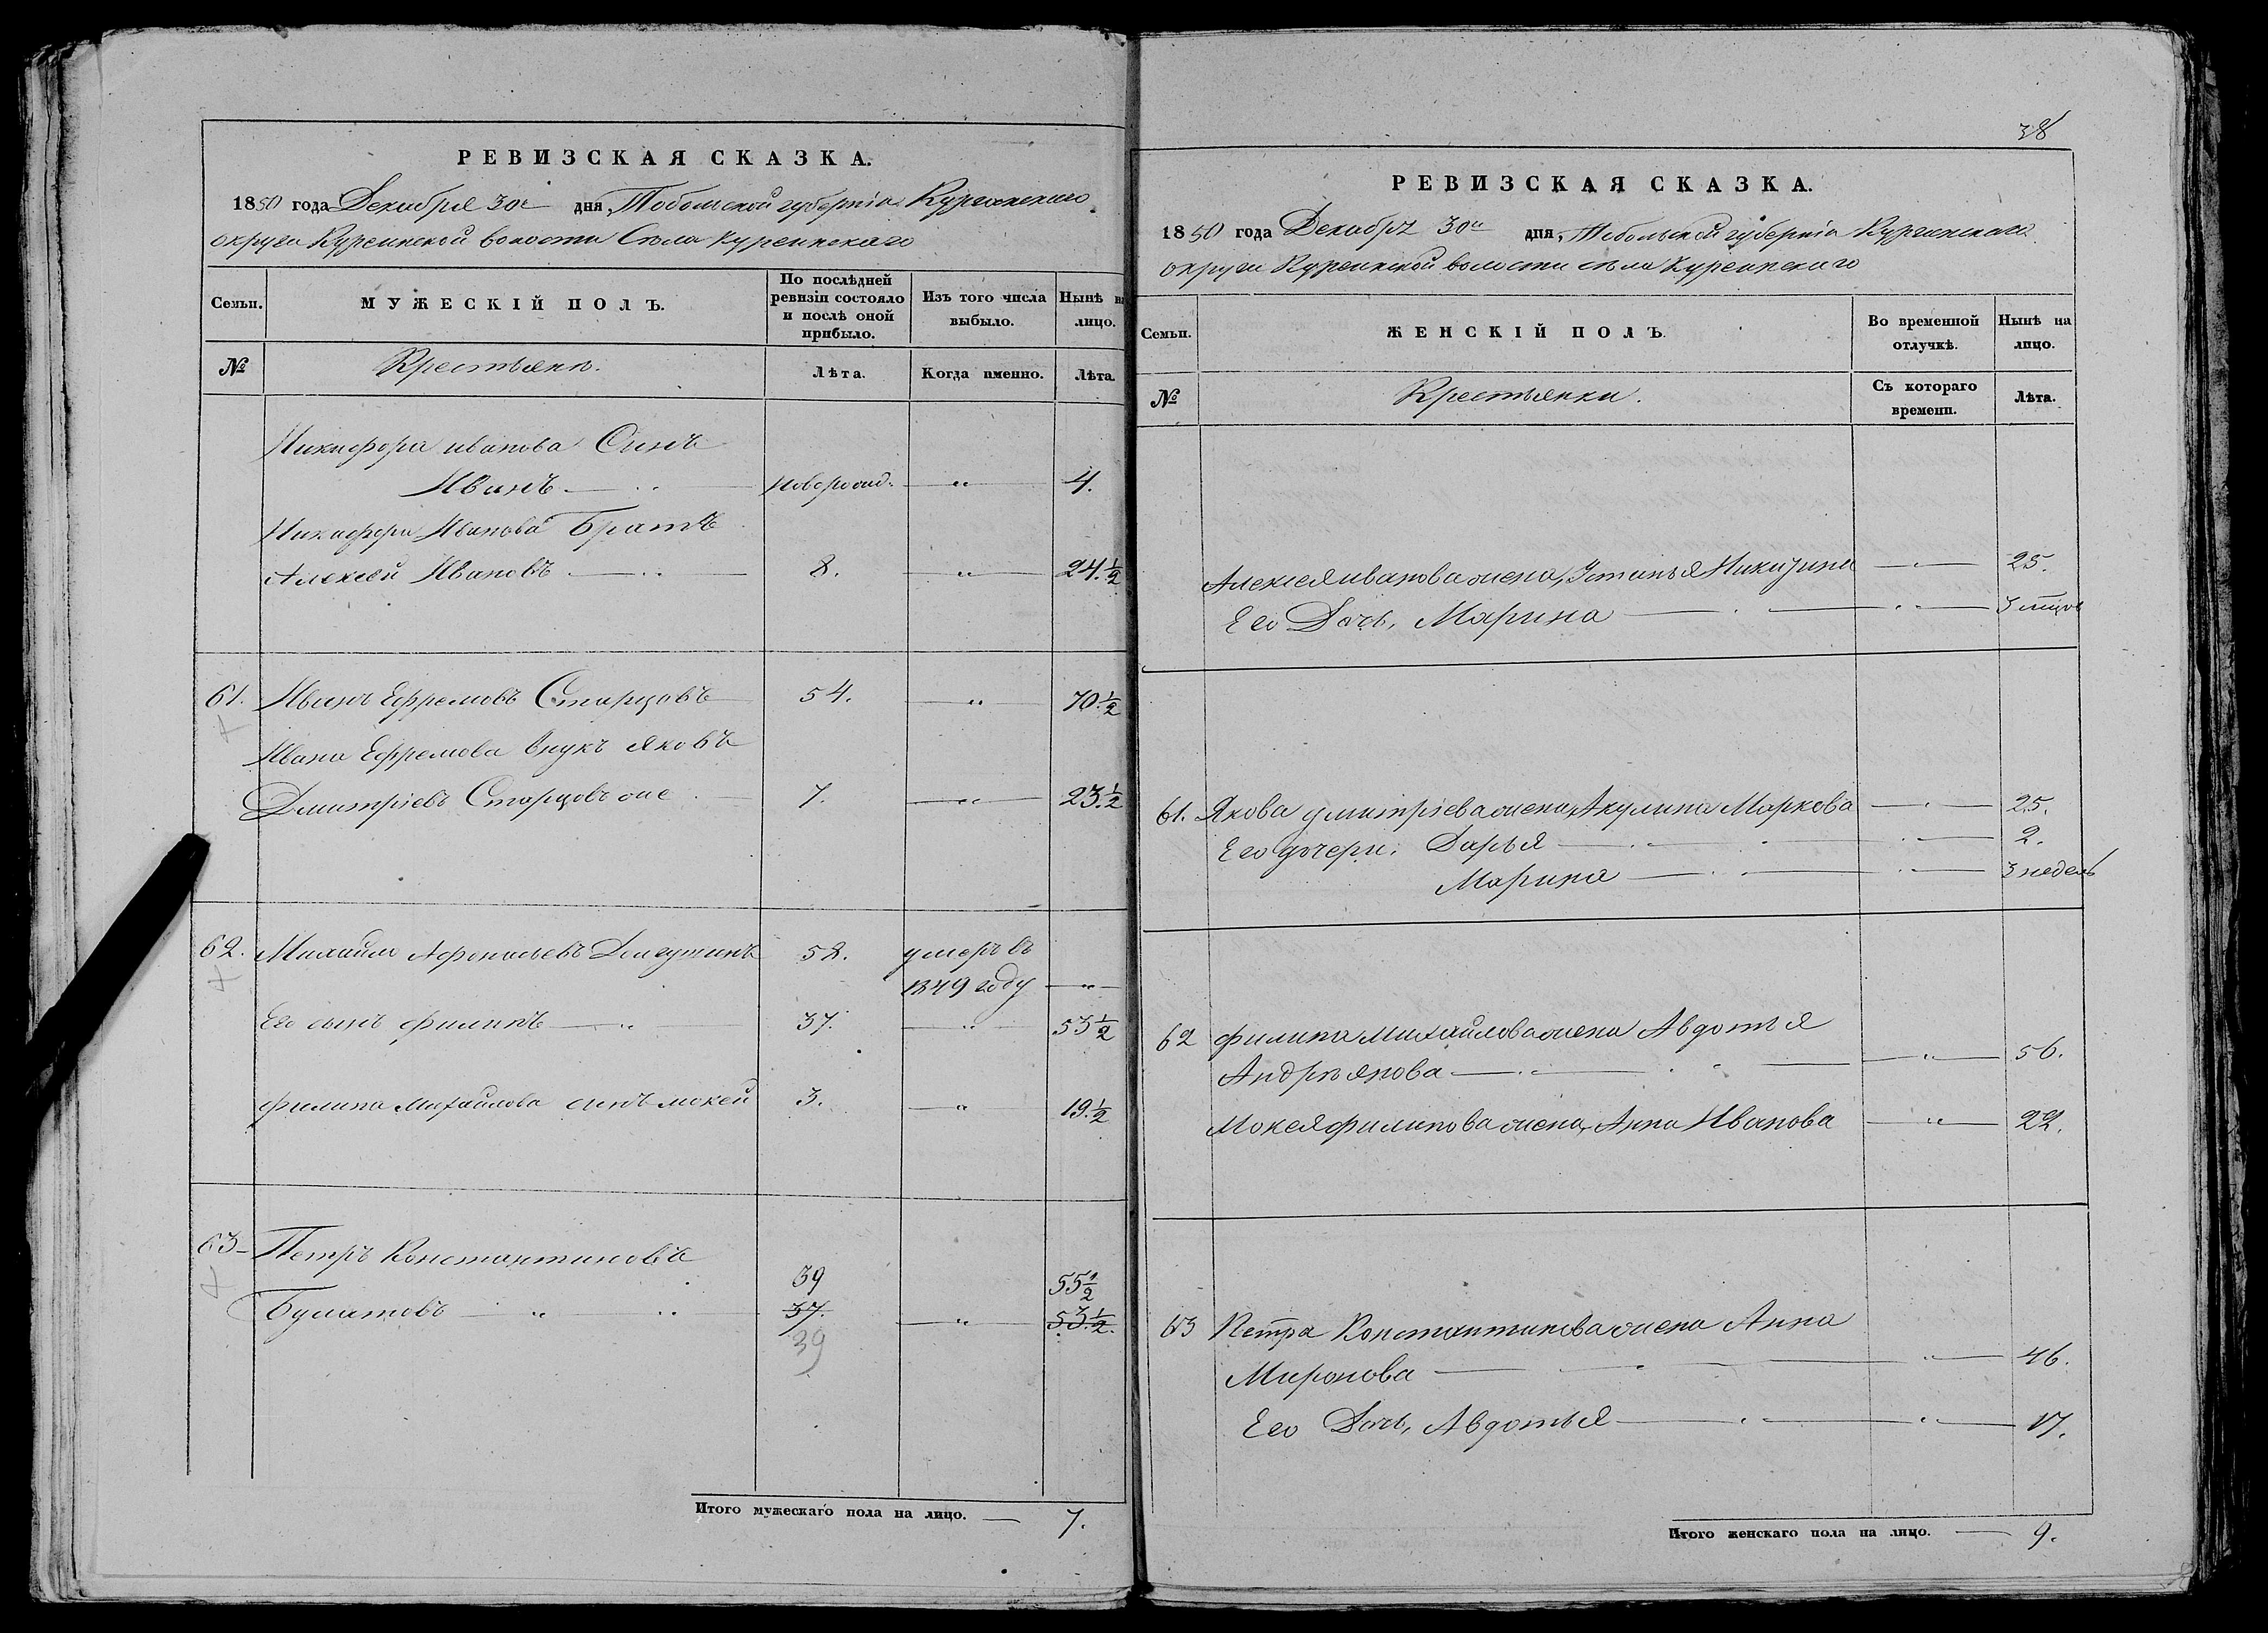 РЕВИЗСКАЯ СКАЗКА.
1850 года Декабря 30го дня, Тобольской губерніи Курганскаго
округи Куреинской волости Села Куреинскаго
Семьи. МУЖЕСКІЙ ПОЛЪ. По послѣдней ревизіи состояло и послѣ оной прибыло. Изъ того числа выбыло. Нынѣ на лицо.
№ Крестьяне. Лѣта. Когда именно. Лѣта.
Никифора иванова Сынъ
Иванъ — новорожд. — " — 4.
Никифора Иванова Братъ
Алексей Ивановъ — 8. — " — 24.½
61. Иванъ Ефремовъ Старцовъ 54. — " — 70.½
Ивана Ефремова внукъ Яковъ
Дмитріевъ Старцовъ же 7. — " — 23.½
62. Михайло Афонасьевъ Долгушинъ 52. умеръ въ
1849 году — " —
Его сынъ филипъ — " 37. — " — 53½
филипа Михайлова сынъ мокей 3. — " — 19.½
63 Петръ Константиновъ
39 55½
Булатовъ — " — 37. — " — 53½.
39
Итого мужескаго пола на лицо. — 7.
38
РЕВИЗСКАЯ СКАЗКА.
1850 года Декабря 30го дня, Тобольской губерніи Курганскаго
округи Куреинской волости села Куреинскаго
Семьи. ЖЕНСКІЙ ПОЛЪ. Во временной отлучкѣ. Нынѣ на лицо.
№ Крестьянки. Съ котораго времени. Лѣта.
Алексея иванова жена, Устинья Никитина — " — 25.
Его Дочь, Марина — " — 3 мцов
61. Якова дмитріева жена, Акулина Маркова — " — 25.
Его дочери, Дарья — " — 2.
Марина — " — 3 недель
62 филипа михайлова жена Авдотья
Андреянова — " — 56.
Мокея филипова жена, Анна Иванова — " — 22.
63 Петра Константинова жена Анна
Миронова — " — 46.
Его Дочь, Авдотья — " — 17.
Итого женскаго пола на лицо. — 9.